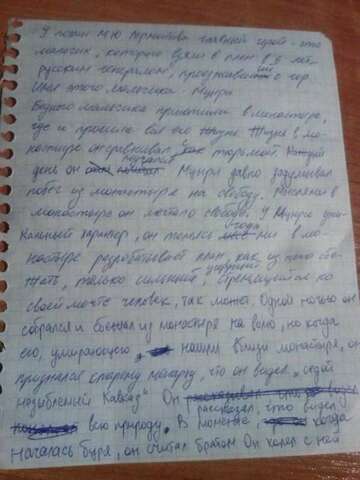 У поэмы М.Ю Лермонтова главный герой - это
мальчик, которого взяли в плен в 6 лет
русским генералом, проезжавший с гор.
Имя этого мальчика - Мцыри
Бедного мальчика приютили в монастыре,
где и прошла вся его Жизнь в мо-
настыре он сравнивал как тюрьмой. Каждый
день он Мцыри давно задумывал
побег из монастыря на свободу.
монастыре он мечтал свободе. У Мцыри
характер, он только в мо-
настыре разрабатывает план, как из него сбе-
жать, только сильный, стремящийся ко
своей мечте человек, так может. Одной ночью он
собрался и сбежал из монастыря на волю, но когда
его, умирающего, нашли близи монастыря, он
признался старому монаху, что он видел "седой
незыблемый Кавказ" Он
рассказал, что видел
всю природу. В моменте когда
началась буря, он считал братом Он хотел с ней